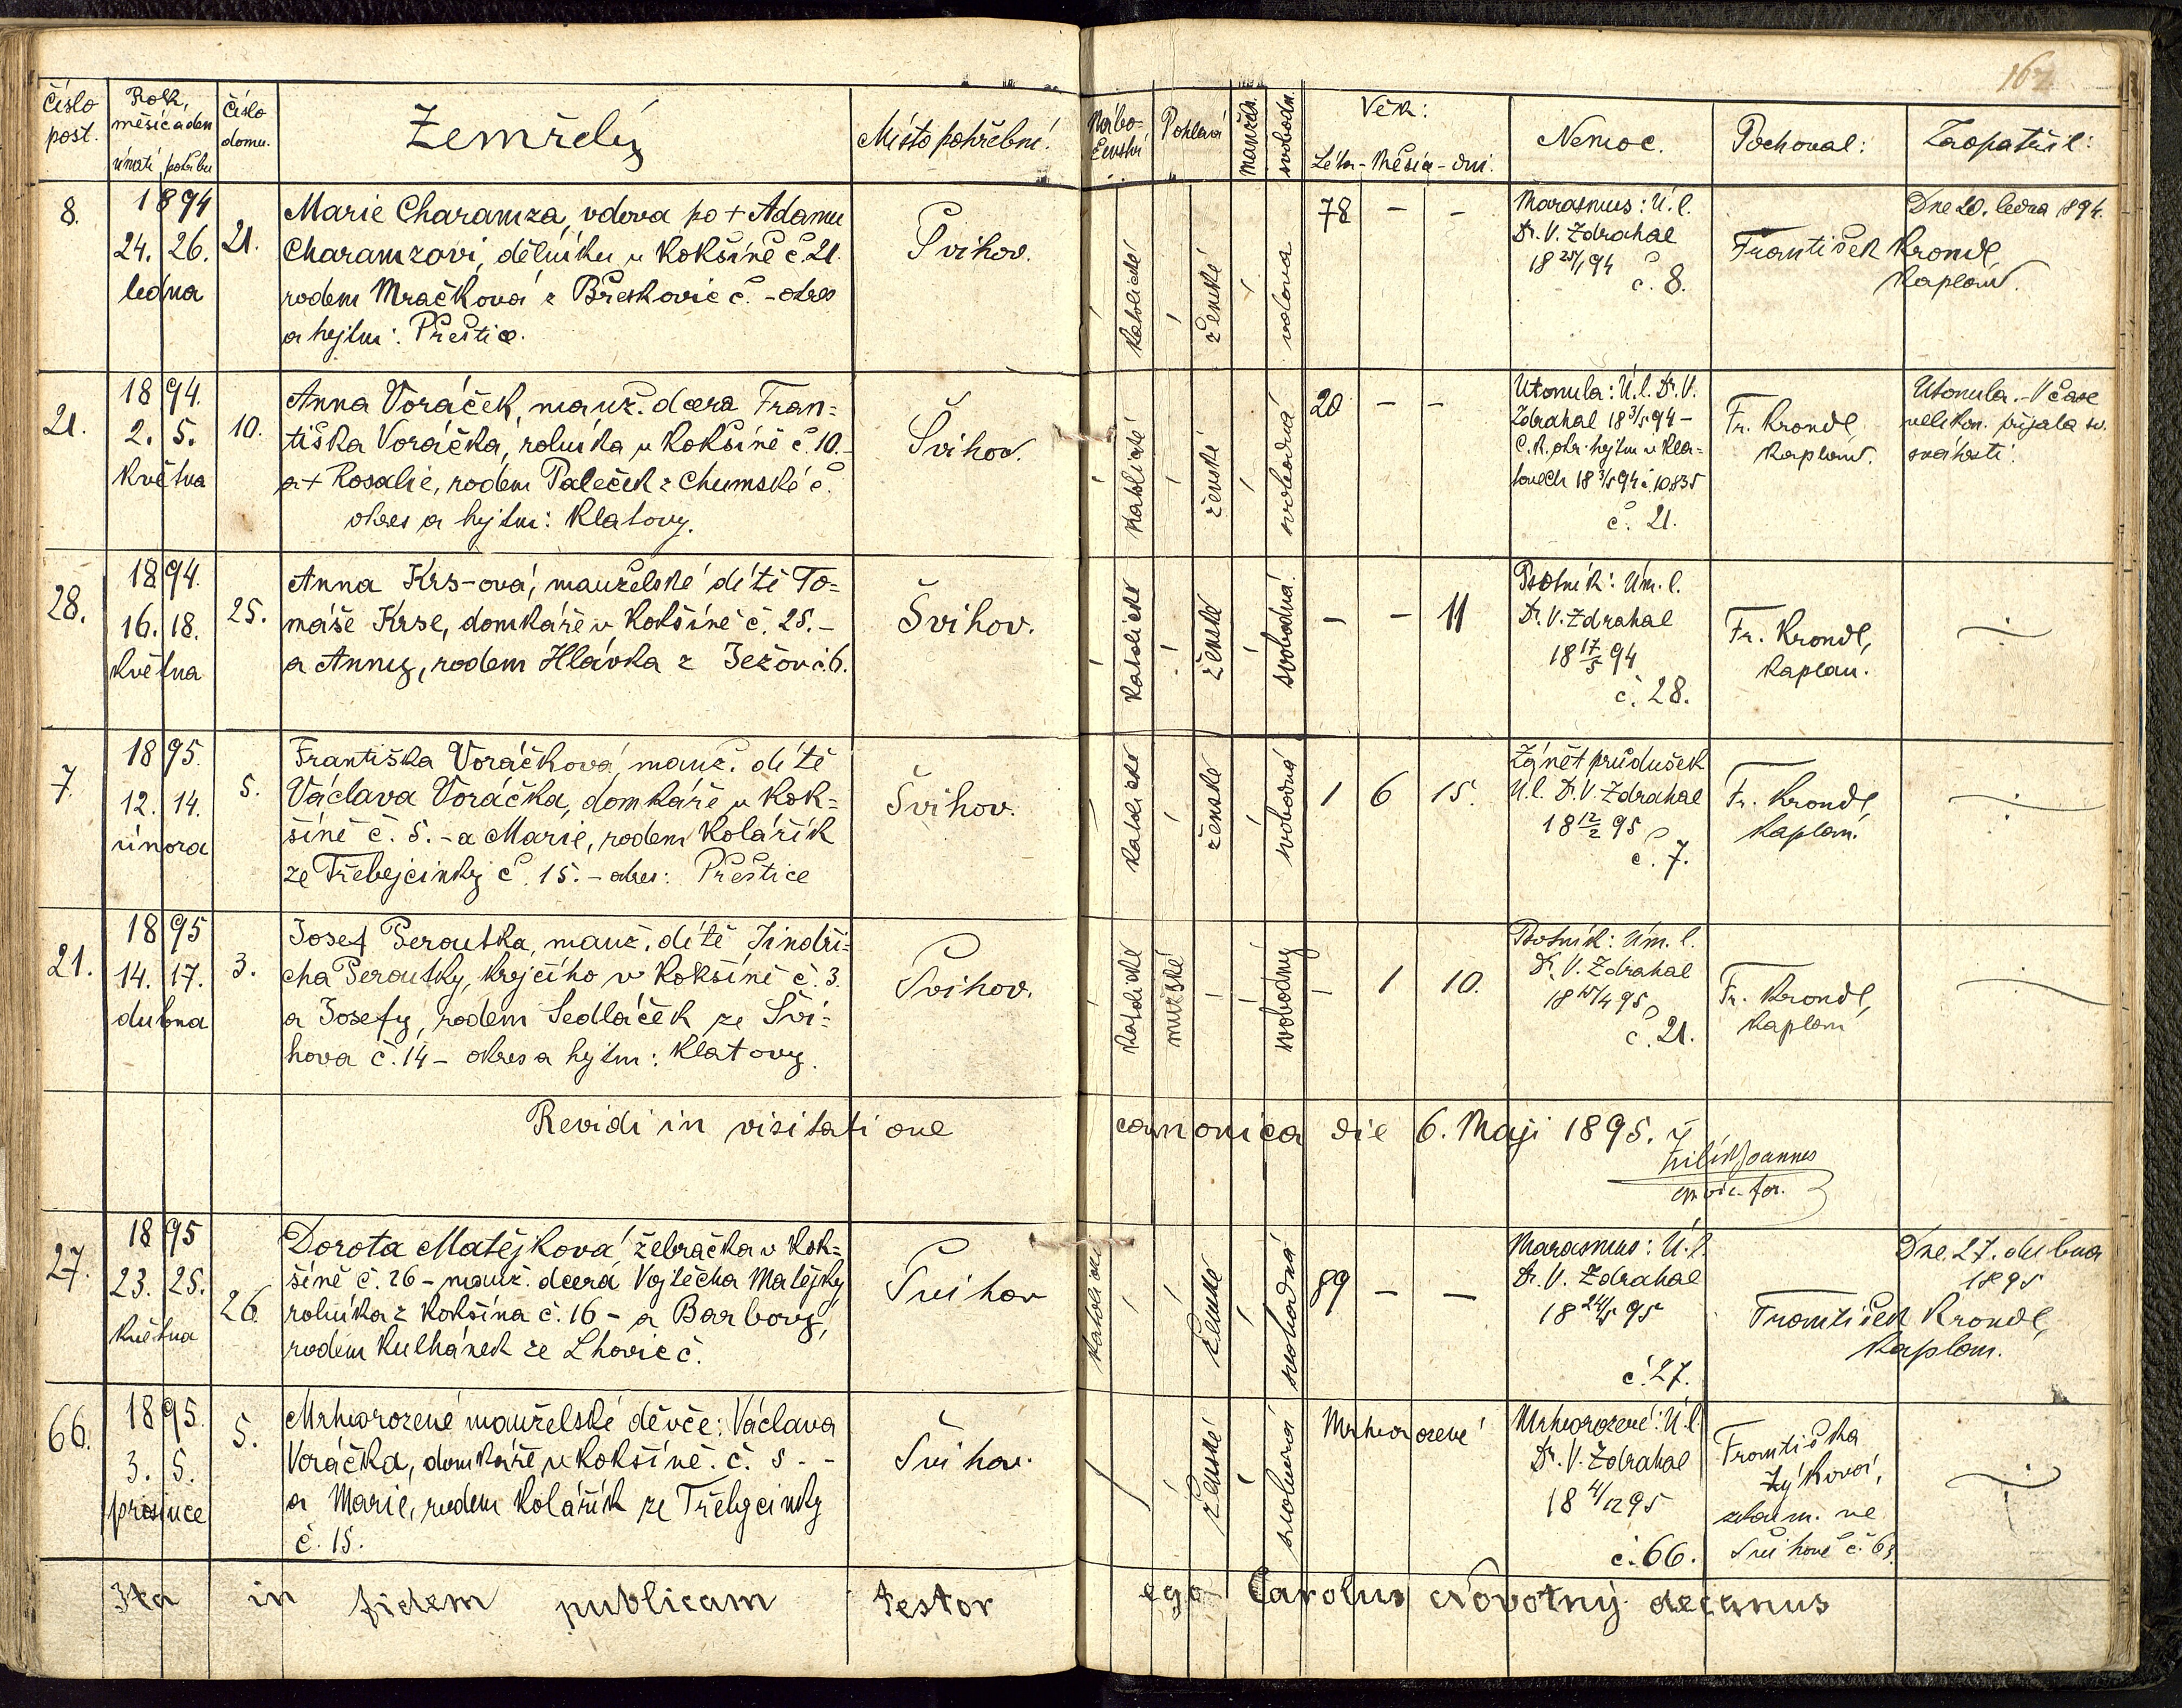 167.
Číslo post.
Rok, měsíc a den
úmrtí pohřbu
Číslo domu.
Zemřelý
Místo pohřební.
Nábo-
ženství
Pohlaví
manžels.
svobodn.
Věk:
Léta - Měsíce - dni.
Nemoc.
Pochoval:
Zaopatřil:
8.
1894
24. 26.
ledna
21.
Marie Charamza, vdova po + Adamu
Charamzovi, dělníku v Kokšíně č. 21.
rodem Mračková z Břeskovic č. - okres
a hejtm: Přeštice.
Švihov.
katolické
ženské
vdova
78 - -
Marasmus: Ú. l.
Dr. V. Zdrahal
18 25/1 94
č. 8.
František Krondl,
kaplan.
Dne 20. ledna 1894.
21.
1894.
2. 5.
května
10.
Anna Voráček, manž. dcera Fran=
tiška Voráčka, rolníka v Kokšíně č. 10.-
a + Rosalie, rodem Paleček z Chumské č.
okres a hejtm: Klatovy.
Švihov.
katolické
ženské
svobodná
20 - -
Utonula: Ú. l. Dr. V.
Zdrahal 18 3/5 94 -
C. k. okr. hejtm. v Kla-
tovech 18 3/5 94 č. 10835
č. 21.
Fr. Krondl
kaplan.
Utonula. - V čase
velikon. přijala sv.
svátosti.
28.
1894.
16. 18.
května
25.
Anna Krs-ová, manželské dítě To=
máše Krse, domkáře v Kokšíně č. 25. -
a Anny, rodem Hlávka z Ježov č. 6.
Švihov.
katolické
ženské
svobodná
- - 11
Psotník: Úm. l.
Dr. V. Zdrahal
18 17/5 94
č. 28.
Fr. Krondl,
kaplan.
7.
1895.
12. 14.
února
5.
Františka Voráčková, manž. dítě
Václava Voráčka, domkáře v Kok=
šíně č. 5. - a Marie, rodem Kolářík
ze Třebejcinky č. 15. - okres: Přeštice
Švihov.
katolické
ženské
svobodná
1 6 15.
Zánět průdušek
Ú. l. Dr. V. Zdrahal
18 12/2 95
č. 7.
Fr. Krondl,
kaplan.
21.
1895
14. 17.
dubna
3.
Josef Peroutka, manž. dítě Jindři=
cha Peroutky, krejčího v Kokšíně č. 3.
a Josefy, rodem Sedláček ze Švi=
hova č. 14 - okres a hejtm: Klatovy.
Švihov.
katolické
mužské
svobodný
- 1 10.
Psotník: Úm. l.
Dr. V. Zdrahal
18 15/4 95
č. 21.
Fr. Krondl,
kaplan
Revidi in visitatione canonica die 6. Maji 1895.
Joannes
27.
1895
23. 25.
května
26.
Dorota Matějková žebračka v Kok=
šíně č. 26 - manž. dcera Vojtěcha Matějky
rolníka z Kokšína č. 16 - a Barbory,
rodem Kulhánek ze Lhovic č.
Švihov
katolické
ženské
svobodná
89 - -
Marasmus: Ú. l.
Dr. V. Zdrahal
18 24/5 95
č. 27.
František Krondl,
kaplan.
Dne 27. dubna
1895
66.
1895.
3. 5.
prosince
5.
Mrtvorozené manželské děvče: Václava
Voráčka, domkáře v Kokšíně. č. 5. -
a Marie, rodem Kolářík ze Třebycinky
č. 15.
Švihov.
ženské
svobodná
Mrtvorozené
Mrtvorozené: Ú. l.
Dr. V. Zdrahal
18 4/12 95
č. 66.
Františka
Zýková,
ve
Švihově č. 63.
Ita in fidem publicam testor ego Carolus Novotný decanus